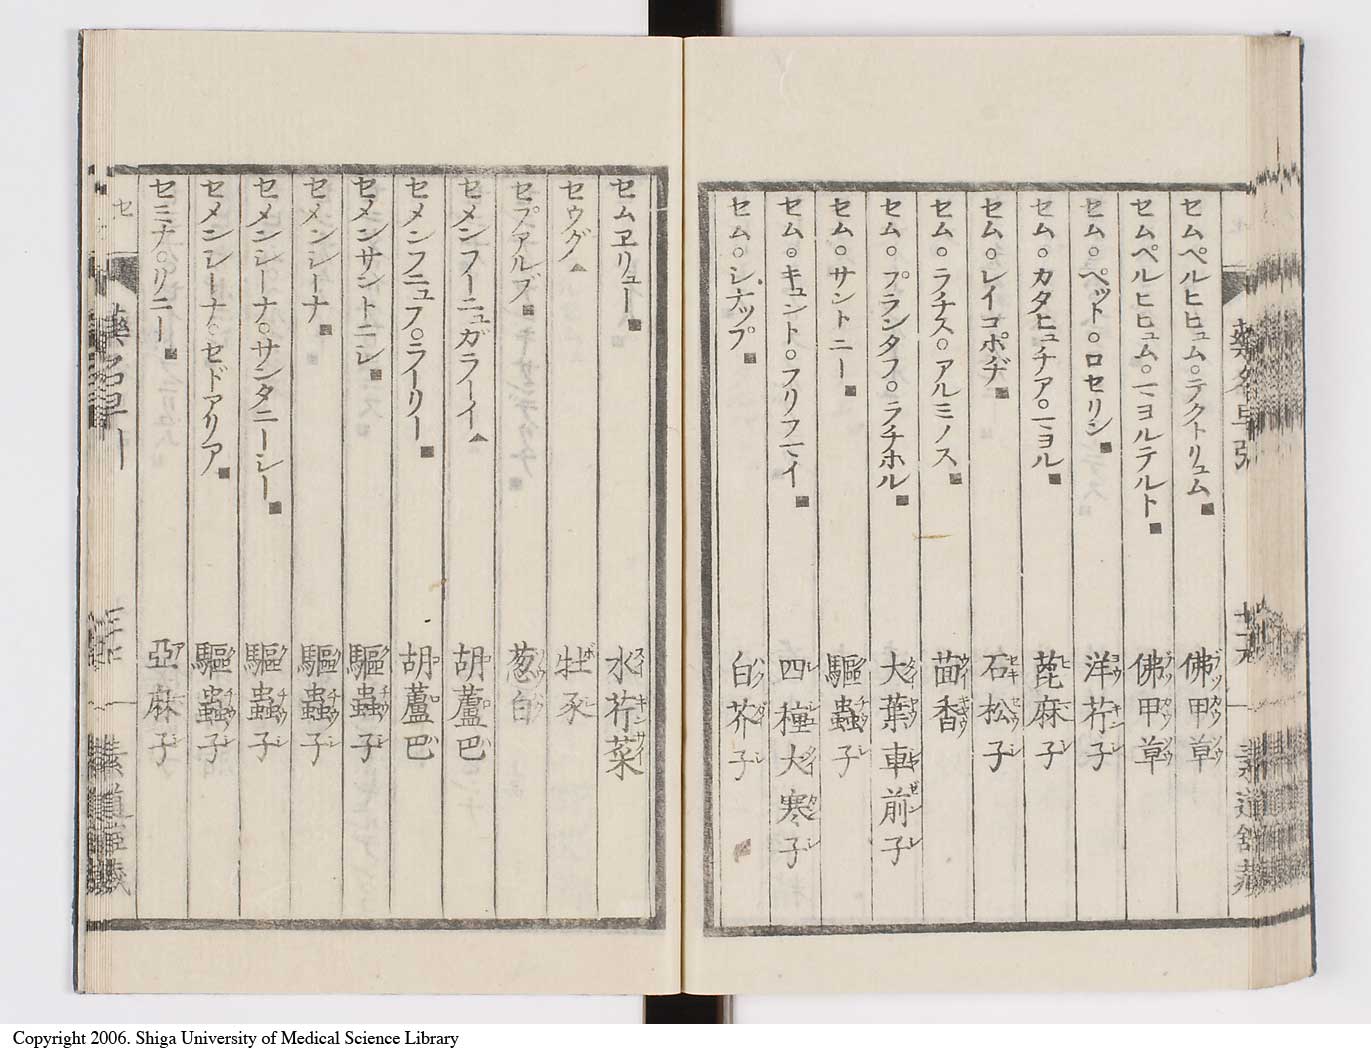 セムペルヒヒュム○テクトリュム■ 佛甲草
セムペルヒヒュム○一ヨルテルト■ 佛甲草
セム○ペット○ロセリシ■ 洋芹子
セム○カタヒュチア○一ヨル■ 蓖麻子
セム○レイコポヂ■ 石松子
セム○ラチス○アルミノス■ 茴香
セム○プランタフ○ラチホル■ 大葉車前子
セム○サントニー■ 驅蟲子
セム○キュント○フリフ一イ■ 四種大寒子
セム○シナップ■ 白芥子
セムヱリュー■ 水芹菜
セウグ▲ 牡豕
セプアルブ■ 葱白
セメンフーニュガラーイ▲ 胡蘆巴
セメンフニュフ○ラーリー■ 胡蘆巴
セメンサントニレ■ 驅蟲子
セメンシーナ■ 驅蟲子
セメンシーナ○サンタニーシー■ 驅蟲子
セメンシーナ○セドアリア■ 驅蟲子
セミナ○リニー■ 亞麻子
セ
Copyright 2006. Shiga University of Medical Science Library